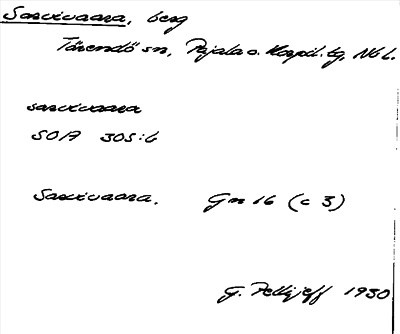 Sarvivaara, berg
Tärendö sn, Pajala o. Korpil. tg, Nb l.
sarvivaara
SOA 305:6
Sarvivaara. Gn 16 (c 3)
G. Pellijeff 1930